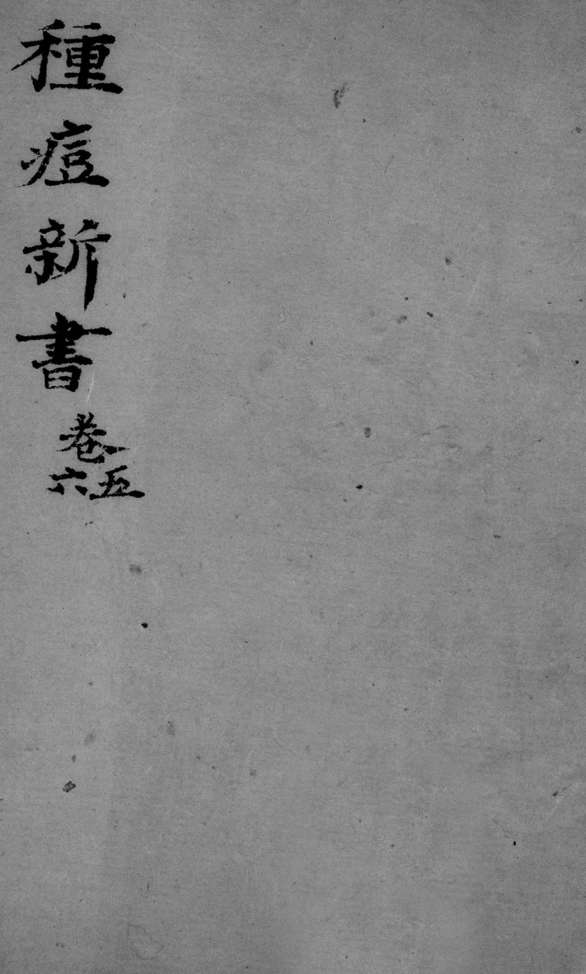 種痘新書
卷
五
六